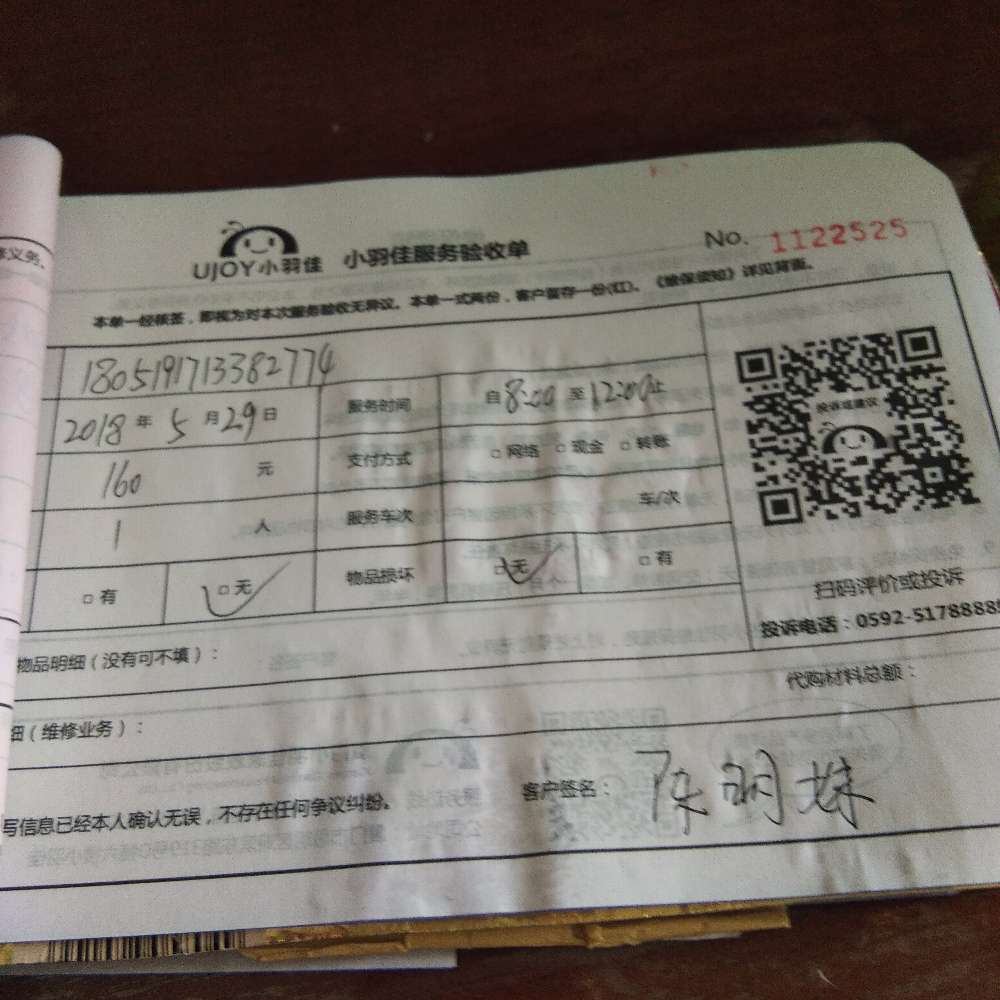 修义务。
UJOY小羽佳 小羽佳服务验收单 No. 1122525
本单一经核签，即视为对本次服务验收无异议。本单一式两份，客户留存一份(红)。《维保须知》详见背面。
1805191713382774
2018年5月29日 服务时间 自8:00至12:00止
160元 支付方式 □网络 □现金 □转账
1人 服务车次 车/次
□有 □无 物品损坏 □无 □有
投诉或建议
扫码评价或投诉
投诉电话：0592-5178888
物品明细（没有可不填）：
代购材料总额：
细（维修业务）：
写信息已经本人确认无误，不存在任何争议纠纷。
客户签名：陈明妹